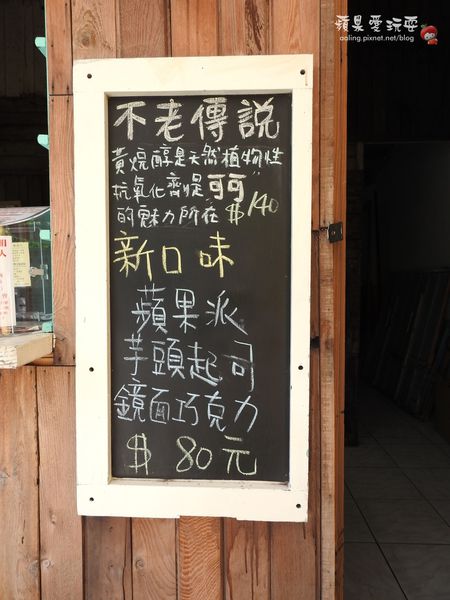 蘋果愛玩耍
aaling.pixnet.net/blog
不老傳說
黃烷醇是天然植物性
抗氧化齊是"可可"
的魅力所在 $140
新口味
蘋果派
芋頭起司
鏡面巧克力
$ 80元